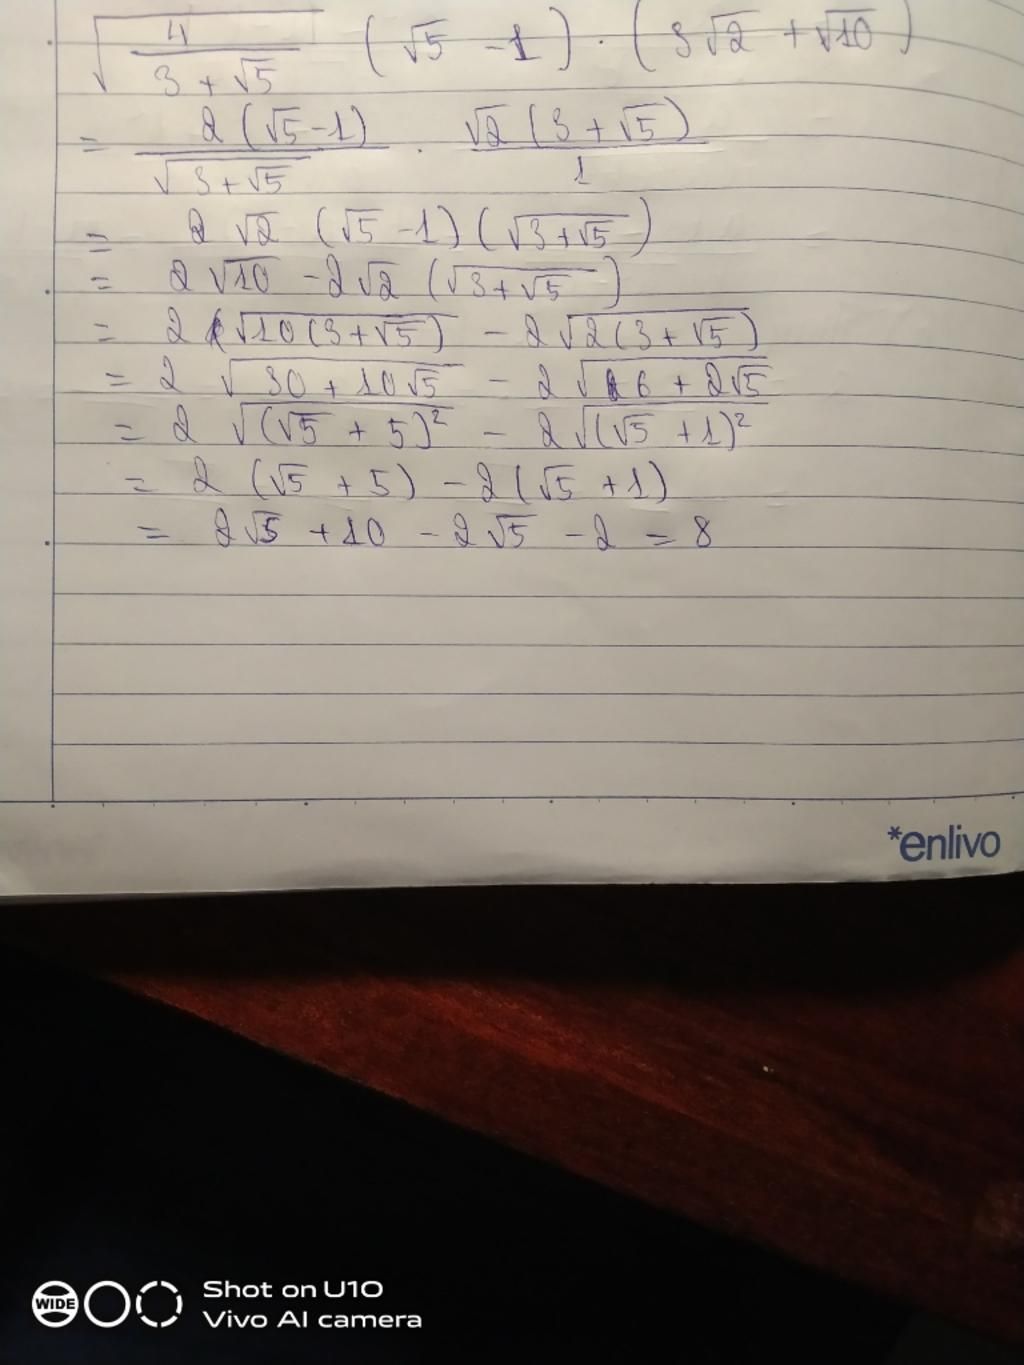 √(4/(3 + √5)) (√5 - 1) · (3√2 + √10)
= 2(√5 - 1)/√(3 + √5) · √2(3 + √5)/1
= 2√2 (√5 - 1)(√(3 + √5))
= 2√10 - 2√2 (√(3 + √5))
= 2√(10(3 + √5)) - 2√(2(3 + √5))
= 2√(30 + 10√5) - 2√(6 + 2√5)
= 2√((√5 + 5)²) - 2√((√5 + 1)²)
= 2(√5 + 5) - 2(√5 + 1)
= 2√5 + 10 - 2√5 - 2 = 8
*enlivo
WIDE
Shot on U10
Vivo AI camera